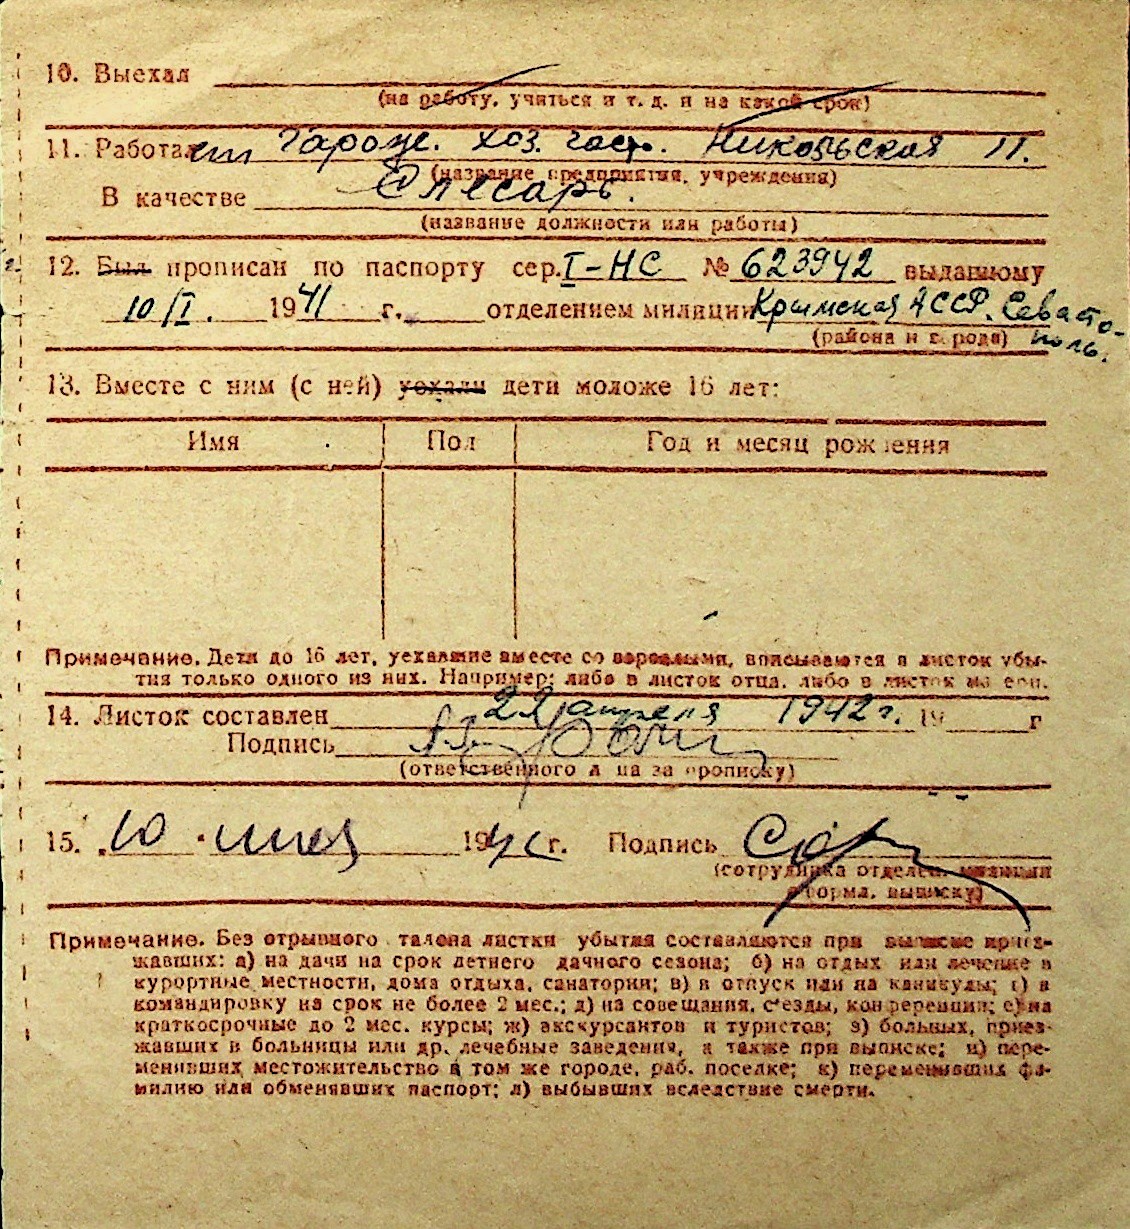 10. Выехал
(на работу, учиться и т. д. и на какой срок)
11. Работает Гараж. хоз. част. Никольская 11.
(название предприятия, учреждения)
В качестве Слесарь.
(название должности или работы)
12. Был прописан по паспорту сер. I-НС № 623942 выданному
10/I. 1941 г. отделением милиции Крымская АССР. Севасто-
поль.
(района и города)
13. Вместе с ним (с ней) уехали дети моложе 16 лет:
Имя Пол Год и месяц рождения
Примечание. Дети до 16 лет, уехавшие вместе со взрослыми, вписываются в листок убы-
тия только одного из них. Например: либо в листок отца, либо в листок матери.
14. Листок составлен 22 апреля 1942 г. 19 г
Подпись
(ответственного лица за прописку)
15. 10 194 г. Подпись
(сотрудника отделен. милиции
оформл. выписку)
Примечание. Без отрывного талона листки убытия составляются при выписке приез-
жавших: а) на дачи на срок летнего дачного сезона; б) на отдых или лечение в
курортные местности, дома отдыха, санатории; в) в отпуск или на каникулы; г) в
командировку на срок не более 2 мес.; д) на совещания, съезды, конференции; е) на
краткосрочные до 2 мес. курсы; ж) экскурсантов и туристов; з) больных, приез-
жавших в больницы или др. лечебные заведения, а также при выписке; и) пере-
менивших местожительство в том же городе, раб. поселке; к) переменивших фа-
милию или обменявших паспорт; л) выбывших вследствие смерти.